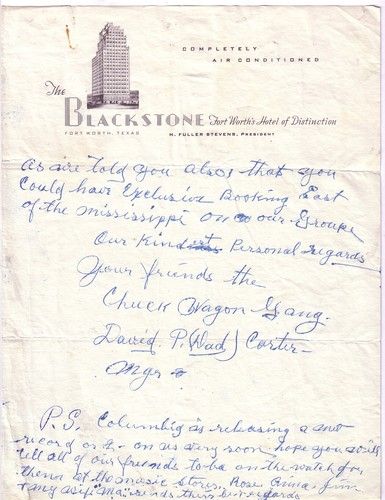 COMPLETELY
AIR CONDITIONED
The
BLACKSTONE Fort Worth's Hotel of Distinction
FORT WORTH, TEXAS
M. FULLER STEVENS, PRESIDENT
as are told you also that you
Could have Exclusive Booking East
of the Mississippi on our Groupe
Our Kindests Personal regards
Your friends the
Chuck Wagon Gang.
David P. (Dad) Carter
Mgr
P.S. Columbia is releasing a new
record on us very soon hope you will
tell all of our friends to be on the watch for
them at the music stores. Rose Anna Jim